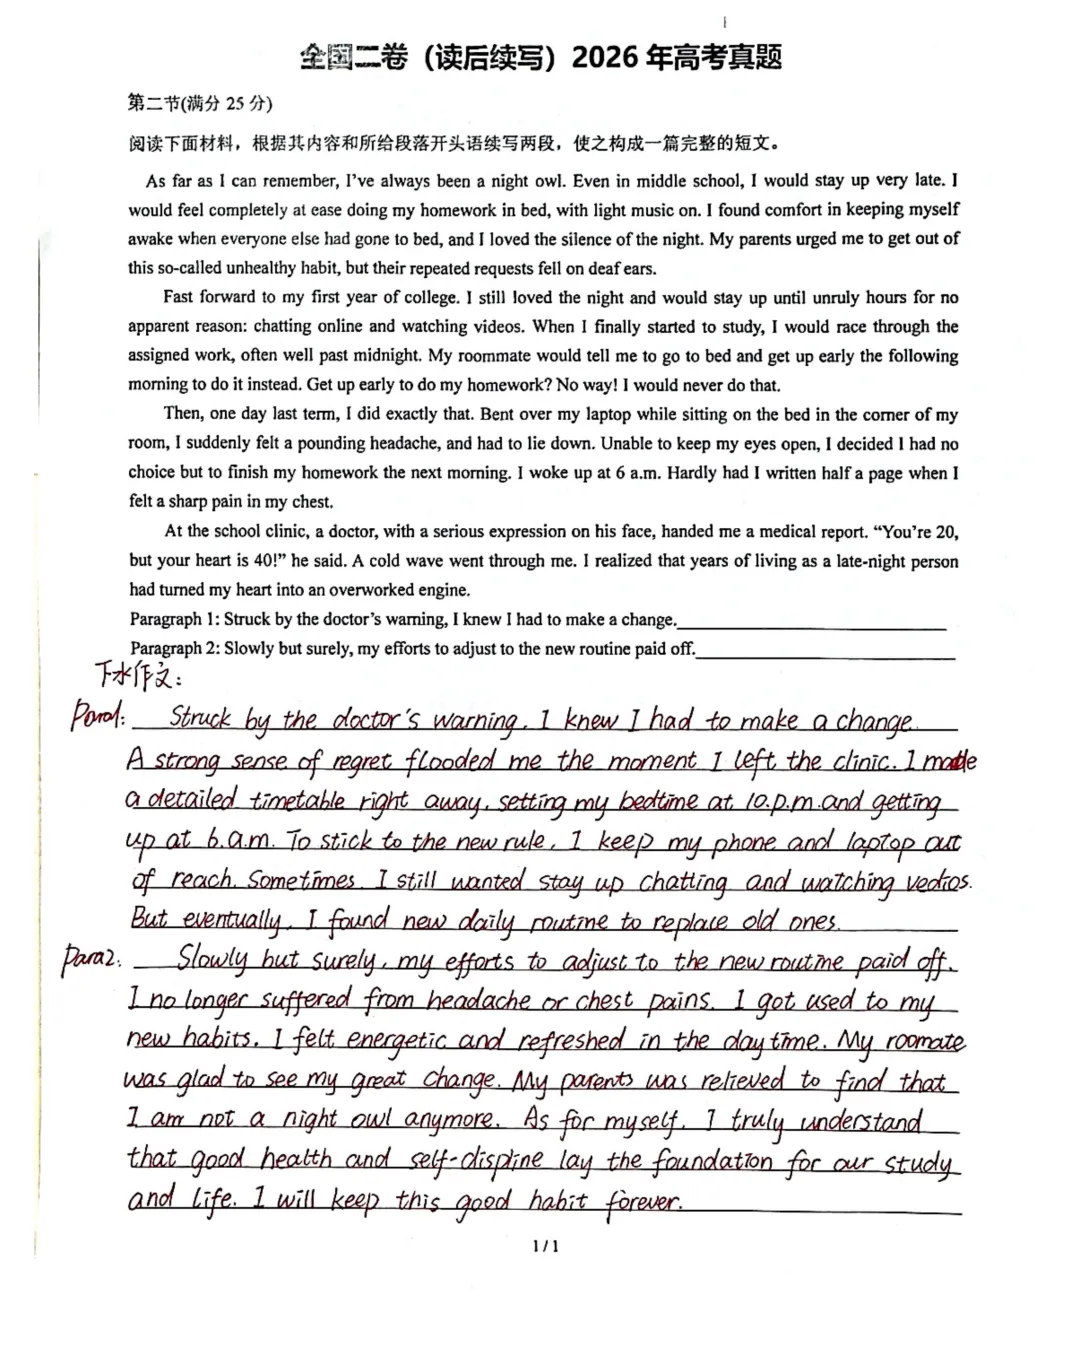 全国二卷（读后续写）2026 年高考真题
第二节(满分 25 分)
阅读下面材料，根据其内容和所给段落开头语续写两段，使之构成一篇完整的短文。
As far as I can remember, I've always been a night owl. Even in middle school, I would stay up very late. I
would feel completely at ease doing my homework in bed, with light music on. I found comfort in keeping myself
awake when everyone else had gone to bed, and I loved the silence of the night. My parents urged me to get out of
this so-called unhealthy habit, but their repeated requests fell on deaf ears.
Fast forward to my first year of college. I still loved the night and would stay up until unruly hours for no
apparent reason: chatting online and watching videos. When I finally started to study, I would race through the
assigned work, often well past midnight. My roommate would tell me to go to bed and get up early the following
morning to do it instead. Get up early to do my homework? No way! I would never do that.
Then, one day last term, I did exactly that. Bent over my laptop while sitting on the bed in the corner of my
room, I suddenly felt a pounding headache, and had to lie down. Unable to keep my eyes open, I decided I had no
choice but to finish my homework the next morning. I woke up at 6 a.m. Hardly had I written half a page when I
felt a sharp pain in my chest.
At the school clinic, a doctor, with a serious expression on his face, handed me a medical report. “You're 20,
but your heart is 40!” he said. A cold wave went through me. I realized that years of living as a late-night person
had turned my heart into an overworked engine.
Paragraph 1: Struck by the doctor's warning, I knew I had to make a change.
Paragraph 2: Slowly but surely, my efforts to adjust to the new routine paid off.
下水作文：
Para1: Struck by the doctor's warning, I knew I had to make a change.
A strong sense of regret flooded me the moment I left the clinic. I made
a detailed timetable right away, setting my bedtime at 10.p.m. and getting
up at 6.a.m. To stick to the new rule, I keep my phone and laptop out
of reach. Sometimes, I still wanted stay up chatting and watching vedios.
But eventually, I found new daily routine to replace old ones.
Para2. Slowly but surely, my efforts to adjust to the new routine paid off.
I no longer suffered from headache or chest pains. I got used to my
new habits. I felt energetic and refreshed in the daytime. My roomate
was glad to see my great change. My parents was relieved to find that
I am not a night owl anymore. As for myself, I truly understand
that good health and self-displine lay the foundation for our study
and life. I will keep this good habit forever.
1 / 1